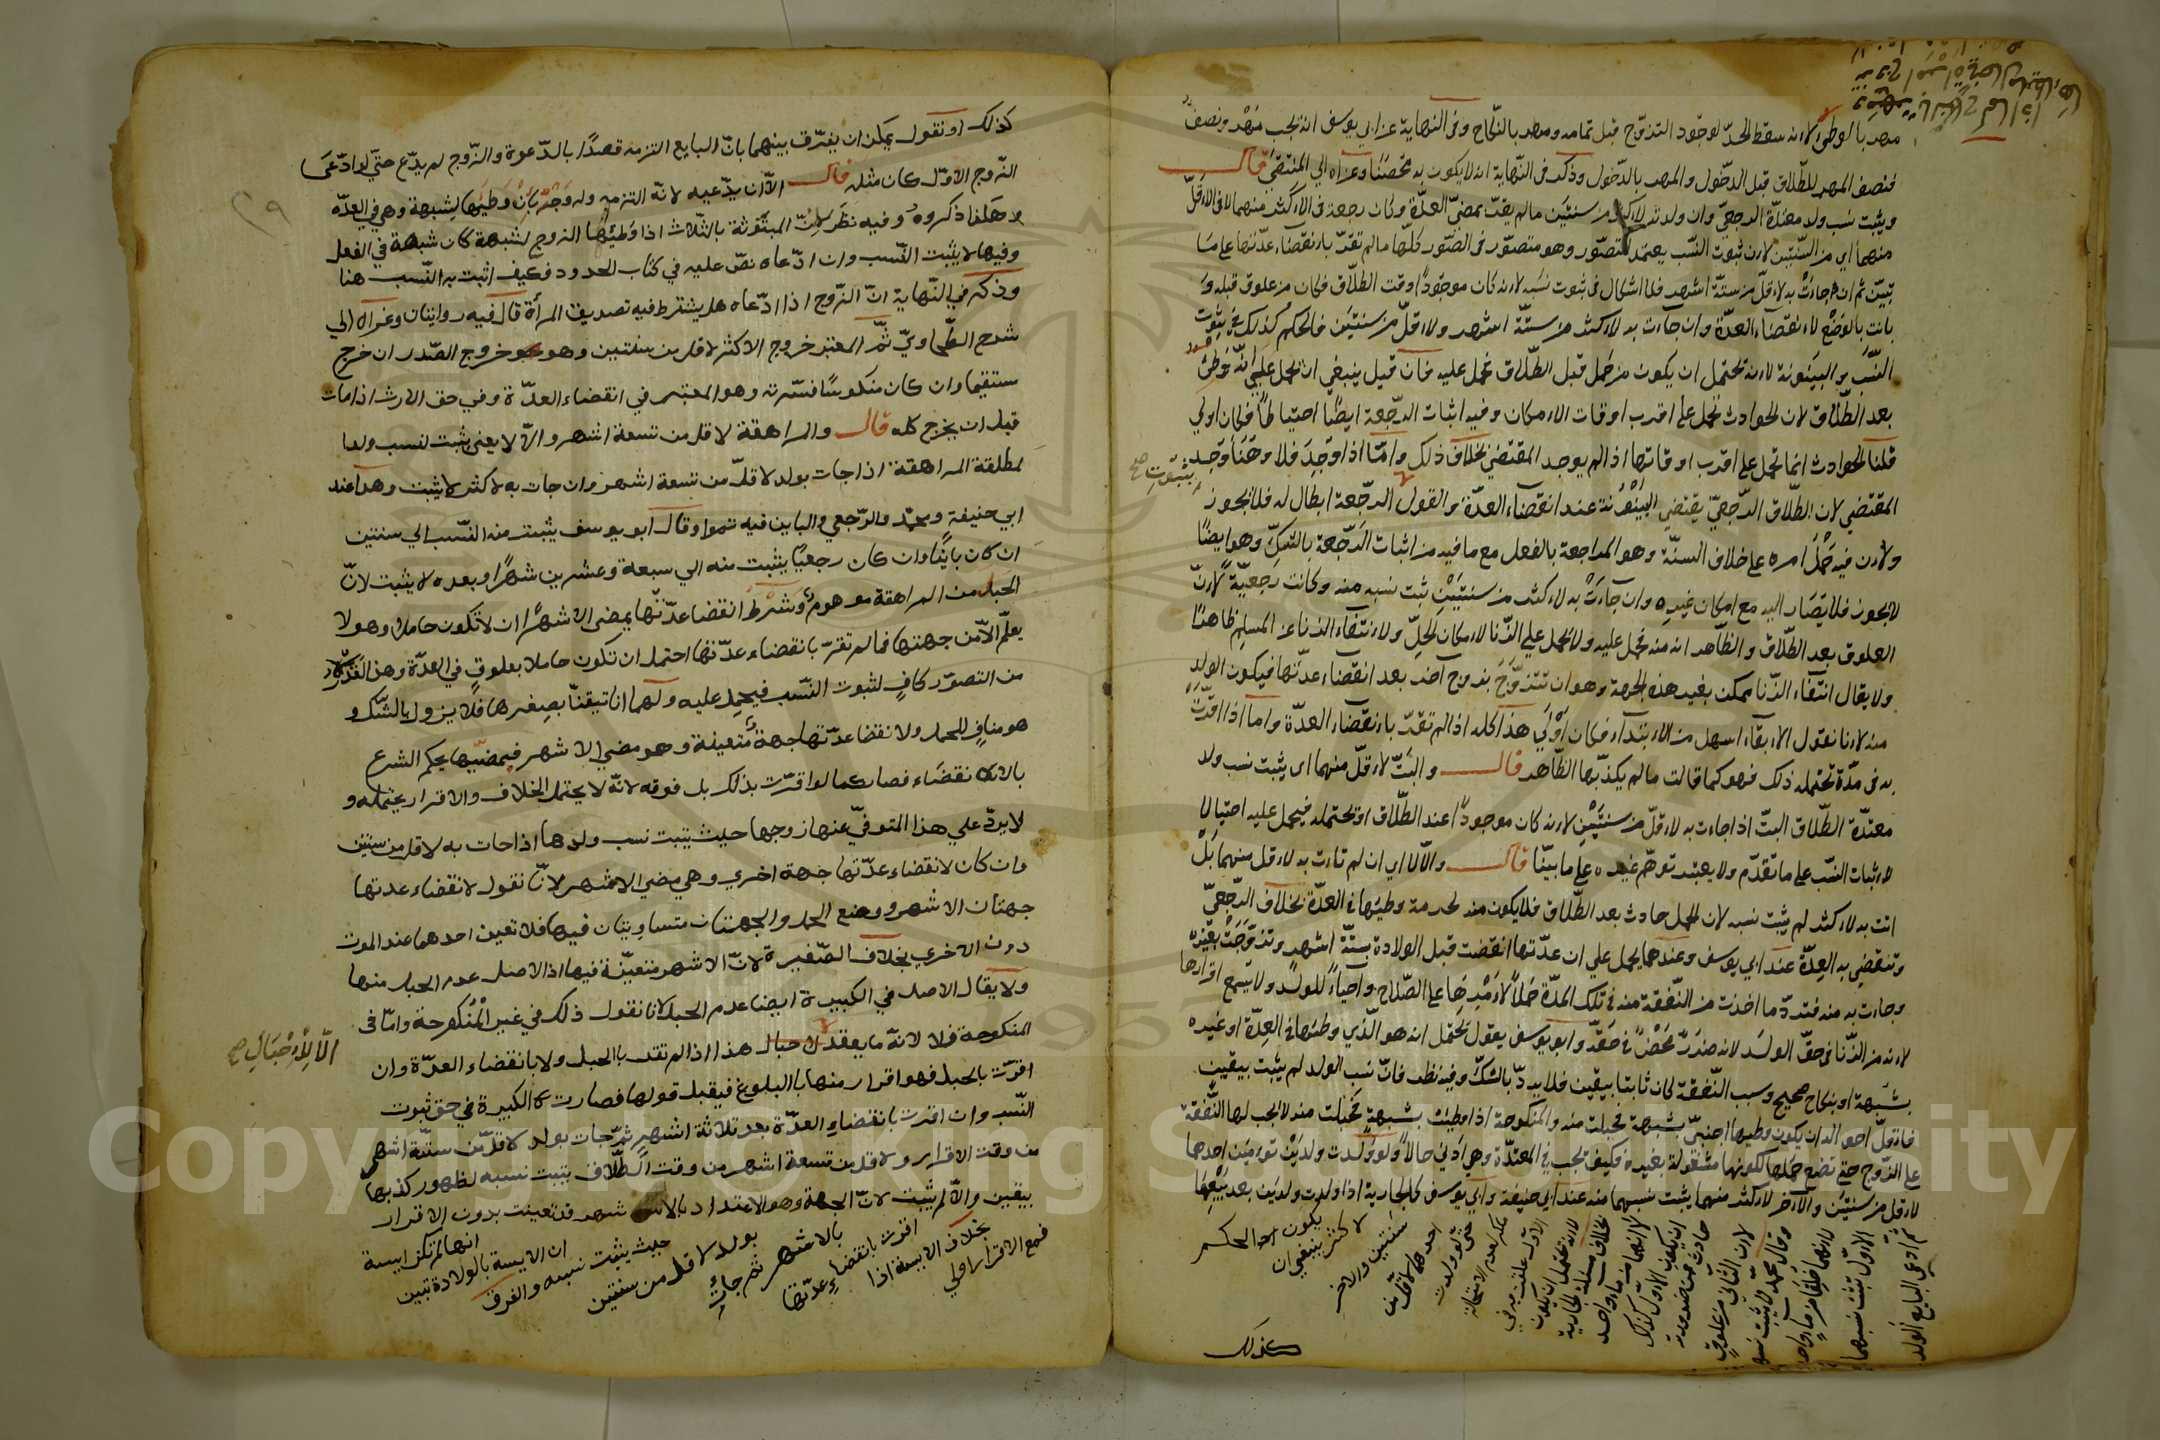 مهر بالوطئ لانه سقط الحد لوجود التزوج قبل تمامه ومهر بالنكاح وفي النهاية عن ابي يوسف انه يجب مهر ونصف
فنصف المهر للطلاق قبل الدخول والمهر بالدخول وذكر في النهاية انه لا يكون به محصنا وعزاه الي المنتقي قال
ويثبت نسب ولد معتدة الرجعي وان ولدته لاكثر من سنتين ما لم تقر بمضي العدة وكان رجعة في الاكثر منهما لا في الاقل
منهما اي من السنتين لان ثبوت النسب يعتمد التصور وهو متصور في الصور كلها ما لم تقر بانقضاء عدتها علي ما
نبين ثم ان جاءت به لاقل من ستة اشهر فلا اشكال في ثبوت نسبه لانه كان موجودا وقت الطلاق فكان من علوق قبله و
بانت بالوضع لانقضاء العدة وان جاءت به لاكثر من ستة اشهر ولاقل من سنتين فالحكم كذلك في ثبوت
النسب والبينونة لانه يحتمل ان يكون من حمل قبل الطلاق فحمل عليه فان قيل ينبغي ان يحمل علي انه بوطئ
بعد الطلاق لان الحوادث تحمل علي اقرب اوقات الامكان وفيه اثبات الرجعة ايضا احتياطا فكان اولي
قلنا الحوادث انما تحمل علي اقرب اوقاتها اذا لم يوجد المقتضي بخلاف ذلك واما اذا وجد فلا وهنا وجد
المقتضي لان الطلاق الرجعي يقتضي البينونة عند انقضاء العدة والقول الرجعة ابطال له فلا يجوز
بثبوت صح
ولان فيه حمل امره علي خلاف السنة وهو المراجعة بالفعل مع ما فيه من اثبات الرجعة بالشك وهو ايضا
لا يجوز فلا يصار اليه مع امكان غيره وان جاءت به لاكثر من سنتين ثبت نسبه منه وكانت رجعية لان
العلوق بعد الطلاق والظاهر انه منه فحمل عليه ولا يحمل علي الزنا لامكان الحل ولانتفاء الزنا عن المسلم ظاهرا
ولا يقال انتفاء الزنا ممكن بغير هذه الجهة وهو ان تتزوج بزوج اخر بعد انقضاء عدتها فيكون الولد
منه لانا نقول الابقاء اسهل من الابتداء فكان اولي هذا كله اذا لم تقر بانقضاء العدة واما اذا اقرت
به في مدة تحتمله ذلك فهو كما قالت ما لم يكذبها الظاهر قال والبت لاقل منهما اي يثبت نسب ولد
معتدة الطلاق البت اذا جاءت به لاقل من سنتين لانه كان موجودا عند الطلاق او تحتمله فيحمل عليه احتيالا
لاثبات النسب علي ما تقدم ولا يعتبر توهم غيره علي ما بينا قال والا لا اي ان لم تات به لاقل منهما بل
اتت به لاكثر لم يثبت نسبه لان الحمل حادث بعد الطلاق فلا يكون منه لحرمة وطئها في العدة بخلاف الرجعي
وتنقضي به العدة عند ابي يوسف وعندهما يحمل علي ان عدتها انقضت قبل الولادة بستة اشهر وتزوجت بغيره
وجاءت به منه فترد ما اخذت من النفقة منه في تلك المدة حملا لامرها علي الصلاح واحياء للولد ولا يسمع اقرارها
لانه من الزنا في حق الولد لانه ضرر محض في حقه وابو يوسف يقول يحتمل انه هو الذي وطئها في العدة او غيره
بشبهة او بنكاح صحيح وسبب النفقة كان ثابتا بيقين فلا يرد بالشك وفيه نظر فان نسب الولد لم يثبت بيقين
فاقل احواله ان يكون وطيها اجنبي بشبهة فحبلت منه والمنكوحة اذا وطئت بشبهة فحبلت منه لا يجب لها النفقة
علي الزوج حتي تضع حملها لكونها مشغولة بغيره فكيف يجب في المعتدة وهي ادني حالا ولو ولدت ولدين توءمين احدهما
لاقل من سنتين والاخر لاكثر منهما يثبت نسبهما منه عند ابي حنيفة وابي يوسف كالجارية اذا ولدت ولدين بعد بيعها
ثم ادعي البايع الولد
الاول يثبت نسبهما
لانهما خلقا من ماء واحد
وقال محمد لا يثبت نسبهما
لان الثاني من علوق
حادث فمن ضرورته
ان يكون الاول كذلك
لانهما من ماء واحد
بخلاف مسئلة الجارية
لانه يحتمل ان يكون
الاول علقت به في
ملكه
حتي لو ولدت
احدهما لاقل من
سنتين والاخر
لاكثر ينبغي ان
يكون الحكم
كذلك
كذلك او نقول يمكن ان يفرق بينهما بان البايع التزمه قصدا بالدعوة والزوج لم يدع حتي لو ادعي
الزوج الاول كان مثله قال الا ان يدعيه لانه التزمه وله وجه بان وطئها لشبهة وهي في العدة
هكذا ذكروه وفيه نظر لان المبتوتة بالثلاث اذا وطئها الزوج لشبهة كان شبهة في الفعل
وفيها لا يثبت النسب وان ادعاه نص عليه في كتاب الحدود فكيف اثبت به النسب هنا
وذكر في النهاية ان الزوج اذا ادعاه هل يشترط فيه تصديق المرأة قال فيه روايتان وعزاه الي
شرح الطحاوي ثم المعتبر خروج الاكثر لاقل من سنتين وهو خروج الصدر ان خرج
مستقيما وان كان منكوسا فسرته وهو المعتبر في انقضاء العدة وفي حق الارث اذا مات
قبل ان يخرج كله قال والمراهقة لاقل من تسعة اشهر والا لا يعني يثبت نسب ولد ا
لمطلقة المراهقة اذا جات بولد لاقل من تسعة اشهر وان جات به لاكثر لا يثبت وهذا عند
ابي حنيفة ومحمد والرجعي والباين فيه سواء وقال ابو يوسف يثبت منه النسب الي سنتين
ان كان باينا وان كان رجعيا يثبت منه الي سبعة وعشرين شهرا وبعده لا يثبت لان
الحبل من المراهقة موهوم وشرط انقضا عدتها بمضي الاشهر ان لا تكون حاملا وهو لا
يعلم الا من جهتها فما لم تقر بانقضاء عدتها احتمل ان تكون حاملا بعلوق في العدة وهذا القدر
من التصور كاف لثبوت النسب فيحمل عليه ولهما انا تيقنا بصغرها فلا يزول بالشك و
هو مناف للحمل ولانقضا عدتها جهة متعينة وهو مضي الاشهر فبمضيها يحكم الشرع
بالانقضاء فصار كما لو اقرت بذلك بل فوقه لانه لا يحتمل الخلاف والاقرار يحتمله و
لا يرد علي هذا المتوفي عنها زوجها حيث يثبت نسب ولدها اذا جات به لاقل من سنتين
وان كان لانقضاء عدتها جهة اخري وهي مضي الاشهر لانا نقول لانقضاء عدتها
جهتان الاشهر ووضع الحمل والجهتان متساويتان فيها فلا تعين احدهما عند الموت
دون الاخري بخلاف الصغيرة لان الاشهر متعينة فيها اذ الاصل عدم الحبل منها
ولا يقال الاصل في الكبيرة ايضا عدم الحبل لانا نقول ذلك في غير المنكوحة واما في
المنكوحة فلا لانه ما يعقد هذا اذا لم تقر بالحبل ولا بانقضاء العدة وان
الا للاحبال صح
اقرت بالحبل فهو اقرار منها بالبلوغ فيقبل قولها فصارت كالكبيرة في حق ثبوت
النسب وان اقرت بانقضاء العدة بعد ثلاثة اشهر ثم جات بولد لاقل من ستة اشهر
من وقت الاقرار ولاقل من تسعة اشهر من وقت الطلاق يثبت نسبه لظهور كذبها
بيقين والا لم يثبت لان الجهة وهو الاعتداد بالاشهر قد تعينت بدون الاقرار
فمع الاقرار اولي
بخلاف الايسة اذا
اقرت بانقضاء عدتها
بالاشهر ثم جاءت
بولد لاقل من سنتين
حيث يثبت نسبه والفرق
ان الايسة بالولادة تبين
انها لم تكن ايسة
٢٩
Copyright © King Saud University
1957